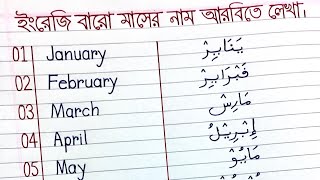 ইংরেজি বারো মাসের নাম আরবিতে লেখা।
01 January يَنَايِرْ
02 February فَبْرَايِرْ
03 March مَارِسْ
04 April إِبْرِيْلُ
05 May مَايُوْ